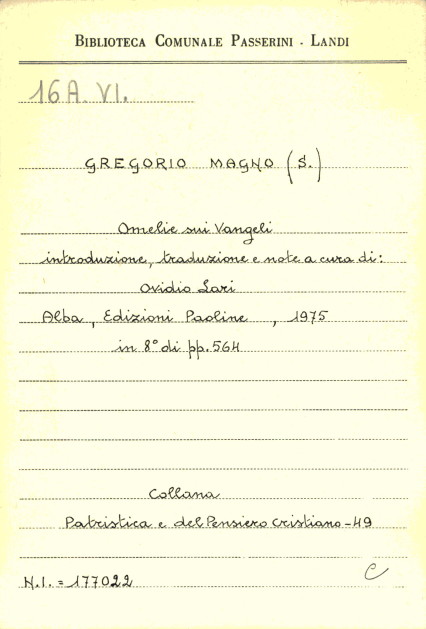 BIBLIOTECA COMUNALE PASSERINI - LANDI
16A. VI.
GREGORIO MAGNO (S.)
Omelie sui Vangeli
introduzione, traduzione e note a cura di:
Ovidio Lari
Alba, Edizioni Paoline, 1975
in 8° di pp. 564
Collana
Patristica e del Pensiero Cristiano - 49
N.I. = 177022
C